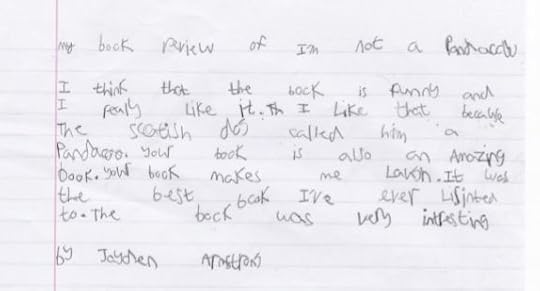 my book review of I'm not a Pandacoo
I think that the book is funny and
I really like it. Th I like that because
The scotish dog called him a
Pandacoo. your book is also an Amazing
book. your book makes me Laugh. It was
the best book I've ever Lisinted
to. The book was very intresting
by Jayden Armstrong